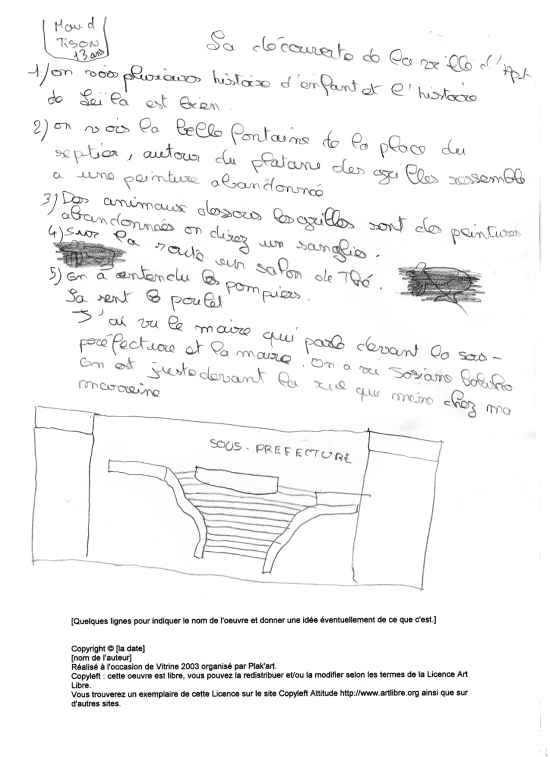 Maud
Tison
13 ans
La découverte de la ville d'Apt
1) on vois plusieurs histoire d'enfant et l'histoire
de Leïla est bien.
2) on vois la belle fontaine de la place du
septier, autour du platane des grilles ressemble
a une peinture abandonné
3) Des animaux dessous les grilles sont des peintures
abandonnées on direz un sanglier.
4) Sur la route un salon de Thé.
5) on à entendu les pompiers.
Sa sent le poulet
J'ai vu le maire qui parle devant la sous-
préfecture et la mairie. On a vu Josiane
On est juste devant la rue qui mène chez ma
marraine
SOUS-PREFECTURE
[Quelques lignes pour indiquer le nom de l'oeuvre et donner une idée éventuellement de ce que c'est.]
Copyright © [la date]
[nom de l'auteur]
Réalisé à l'occasion de Vitrine 2003 organisé par Plak'art.
Copyleft : cette oeuvre est libre, vous pouvez la redistribuer et/ou la modifier selon les termes de la Licence Art
Libre.
Vous trouverez un exemplaire de cette Licence sur le site Copyleft Attitude http://www.artlibre.org ainsi que sur
d'autres sites.